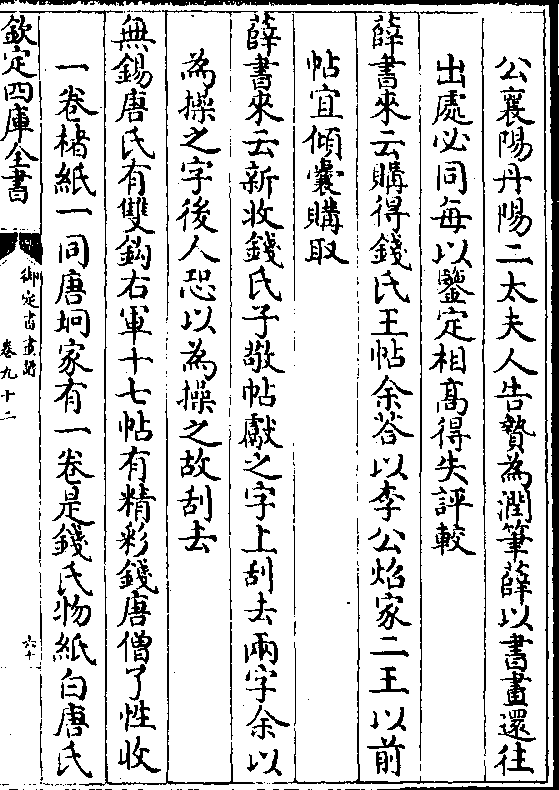 公襄陽丹陽二太夫人告贄為潤筆薛以書畫還往
出處必同每以鑒定相高得失評較
薛書來云購得錢氏王帖余答以李公炤家二王以前
帖宜傾囊購取
薛書來云新收錢氏子敬帖獻之字上刮去兩字余以
為操之字後人恐以為操之故刮去
無錫唐氏有雙鈎右軍十七帖有精彩錢唐僧了性收
一卷楮紙一同唐坰家有一卷是錢氏物紙白唐氏
欽定四庫全書
御定書畫譜
卷九十二
六十